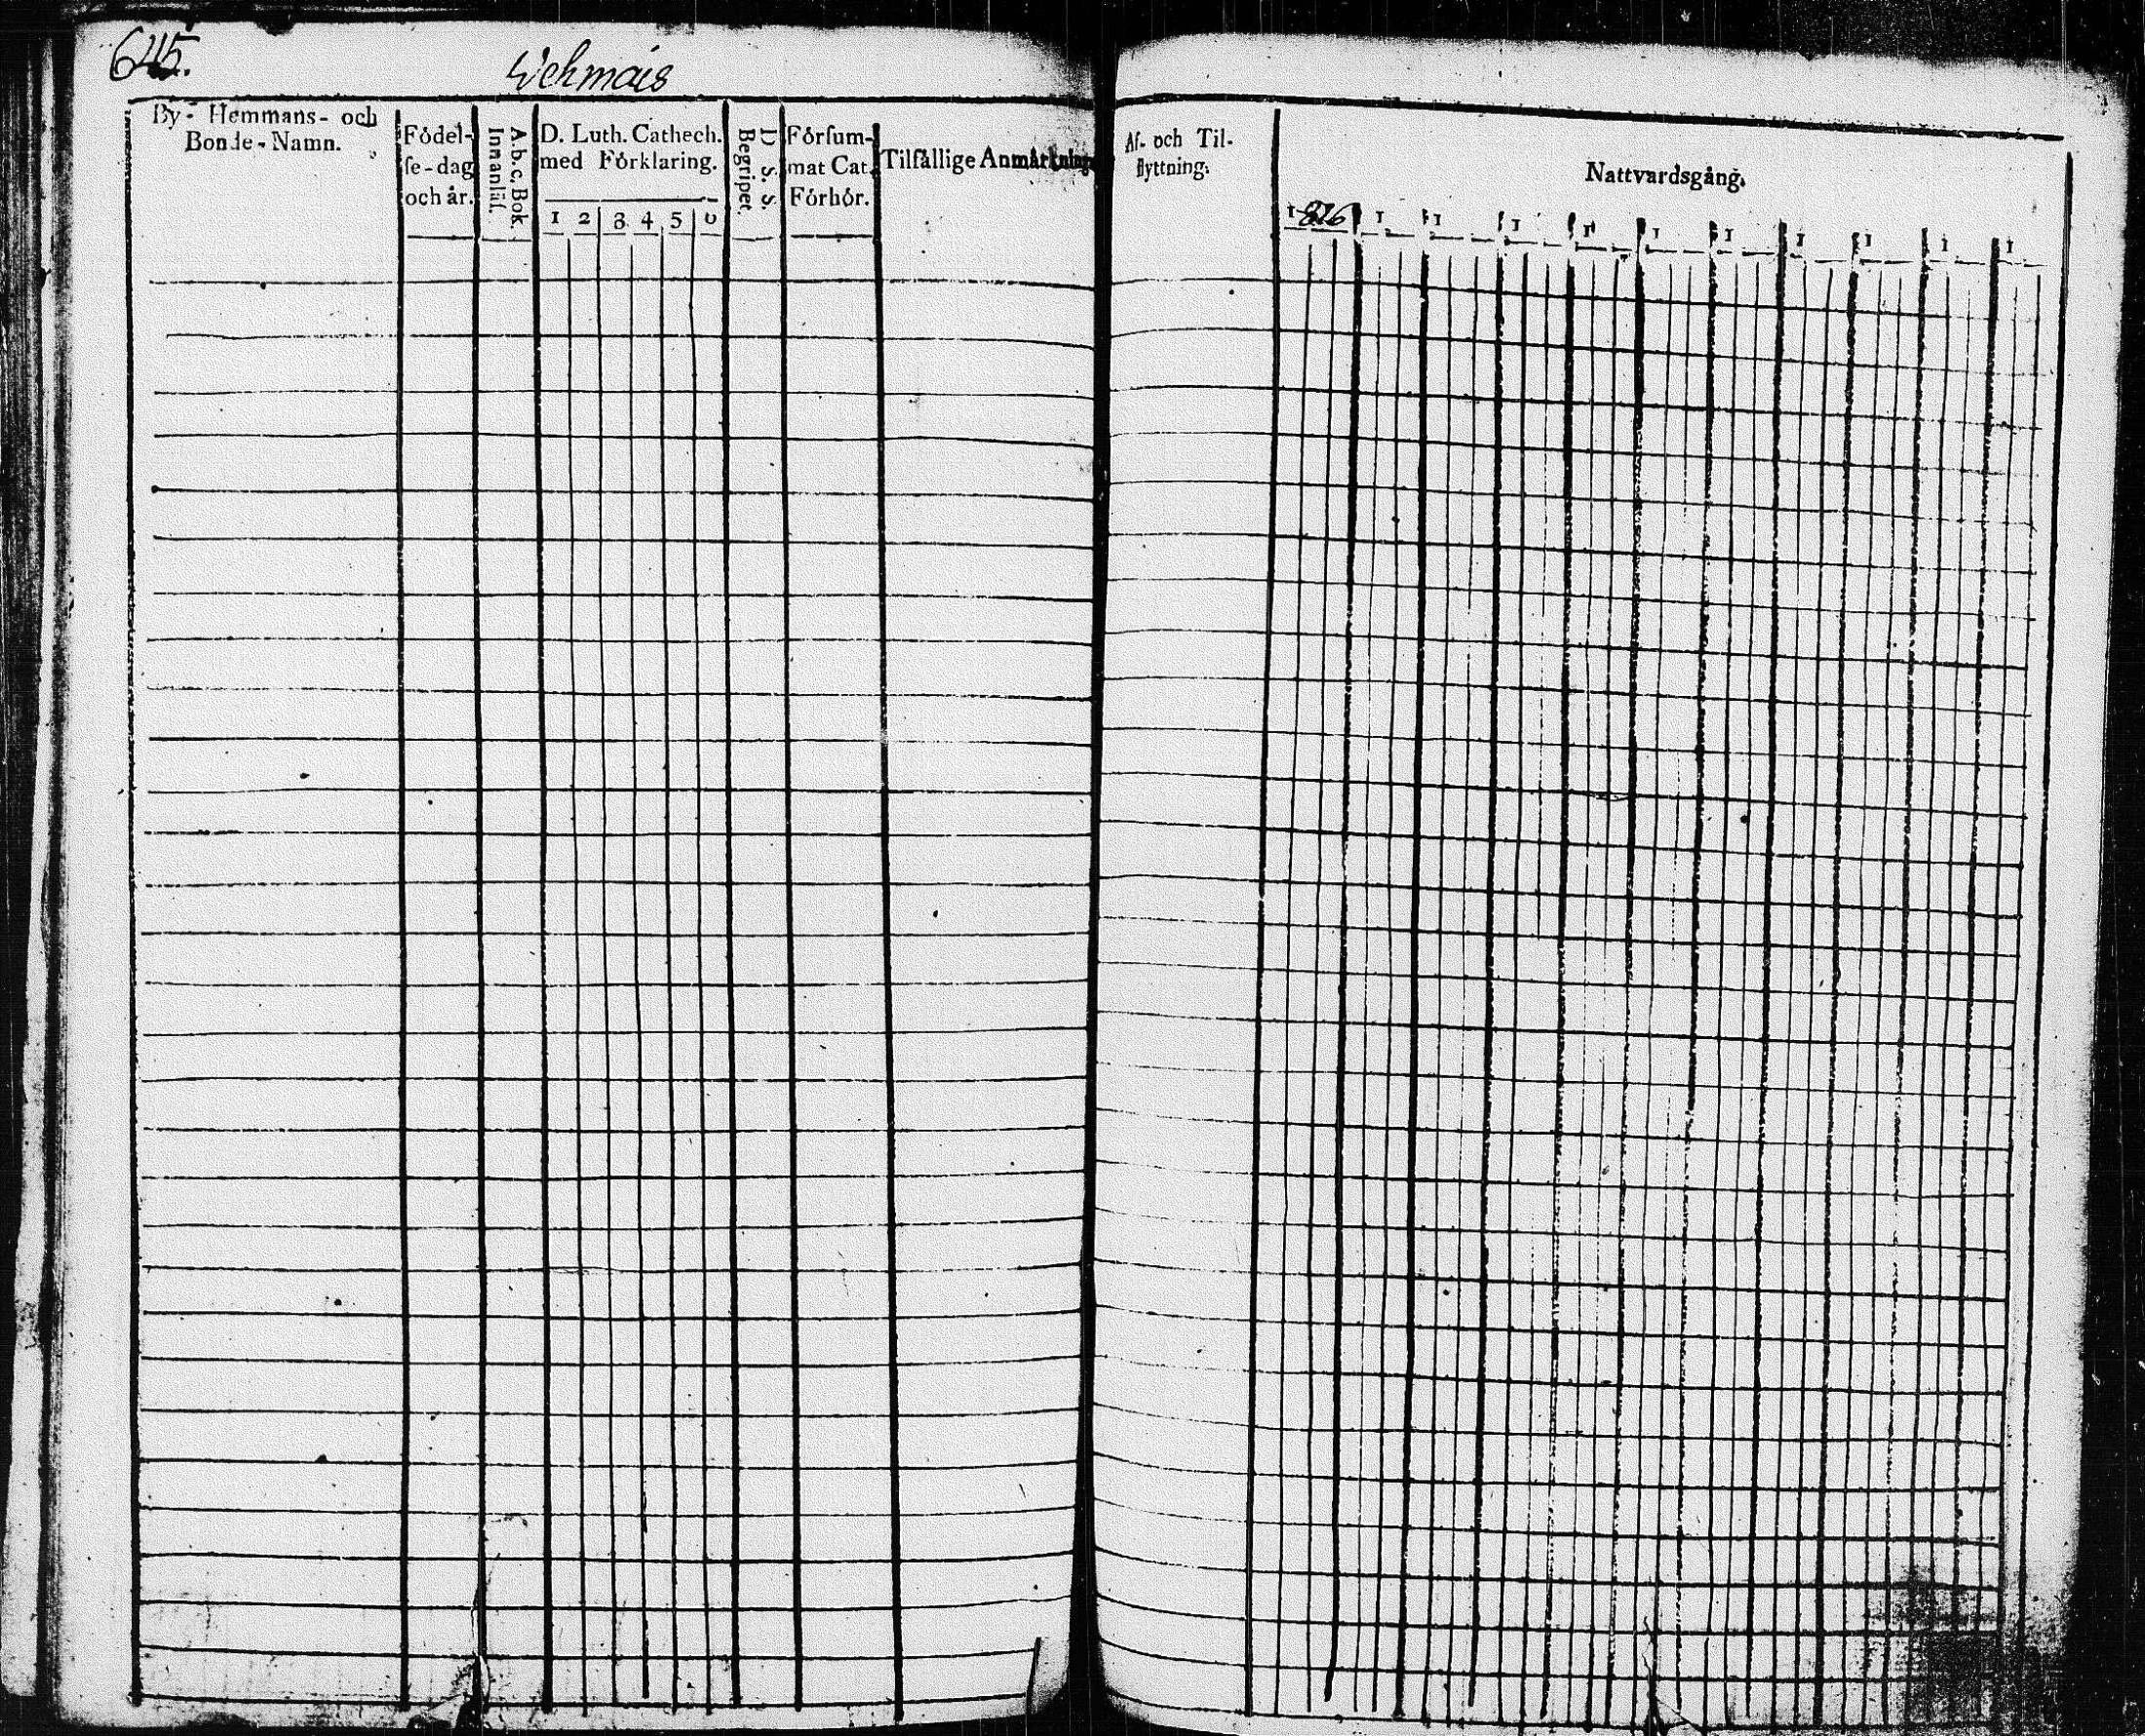 645.
Wehmais
By- Hemmans- och
Bonde-Namn.
Födel-
se-dag
och år.
A.b.c. Bok.
Innanläs.
D. Luth. Cathech.
med Förklaring.
1 2 3 4 5 6
D. S. S.
Begripet.
Försum-
mat Cat.
Förhör.
Tilfällige Anmärkningar
Af- och Til-
flyttning.
Nattvardsgång.
1826 1 1 1 1 1 1 1 1 1 1